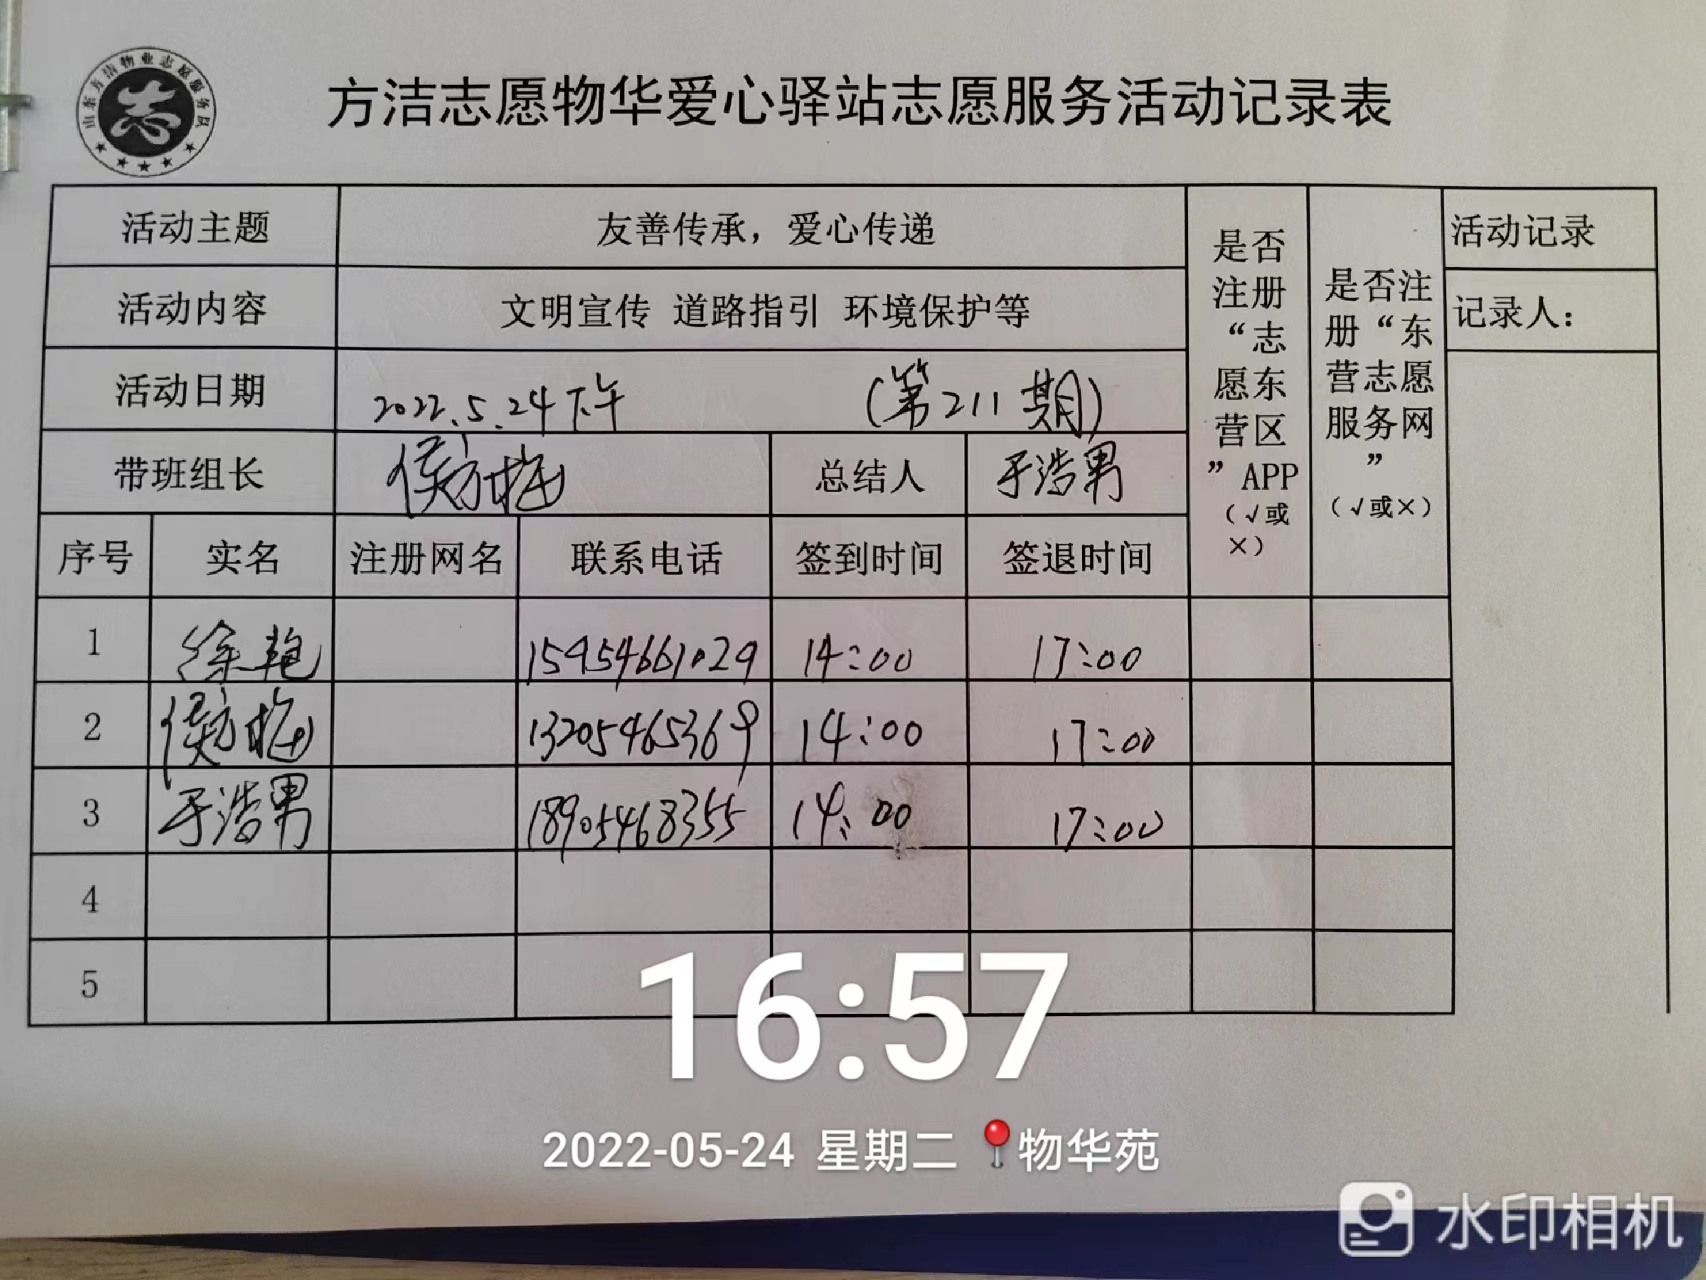 山东方洁物业志愿服务队
志
方洁志愿物华爱心驿站志愿服务活动记录表
活动主题 友善传承，爱心传递
活动内容 文明宣传 道路指引 环境保护等
活动日期 2022.5.24下午 (第211期)
带班组长 侯方梅 总结人 于浩男
是否注册“志愿东营区”APP（√或×）
是否注册“东营志愿服务网”（√或×）
活动记录
记录人：
序号 实名 注册网名 联系电话 签到时间 签退时间
1 徐艳 15954661029 14:00 17:00
2 侯方梅 13205465369 14:00 17:00
3 于浩男 18905468355 14:00 17:00
4
5
16:57
2022-05-24 星期二 物华苑
水印相机